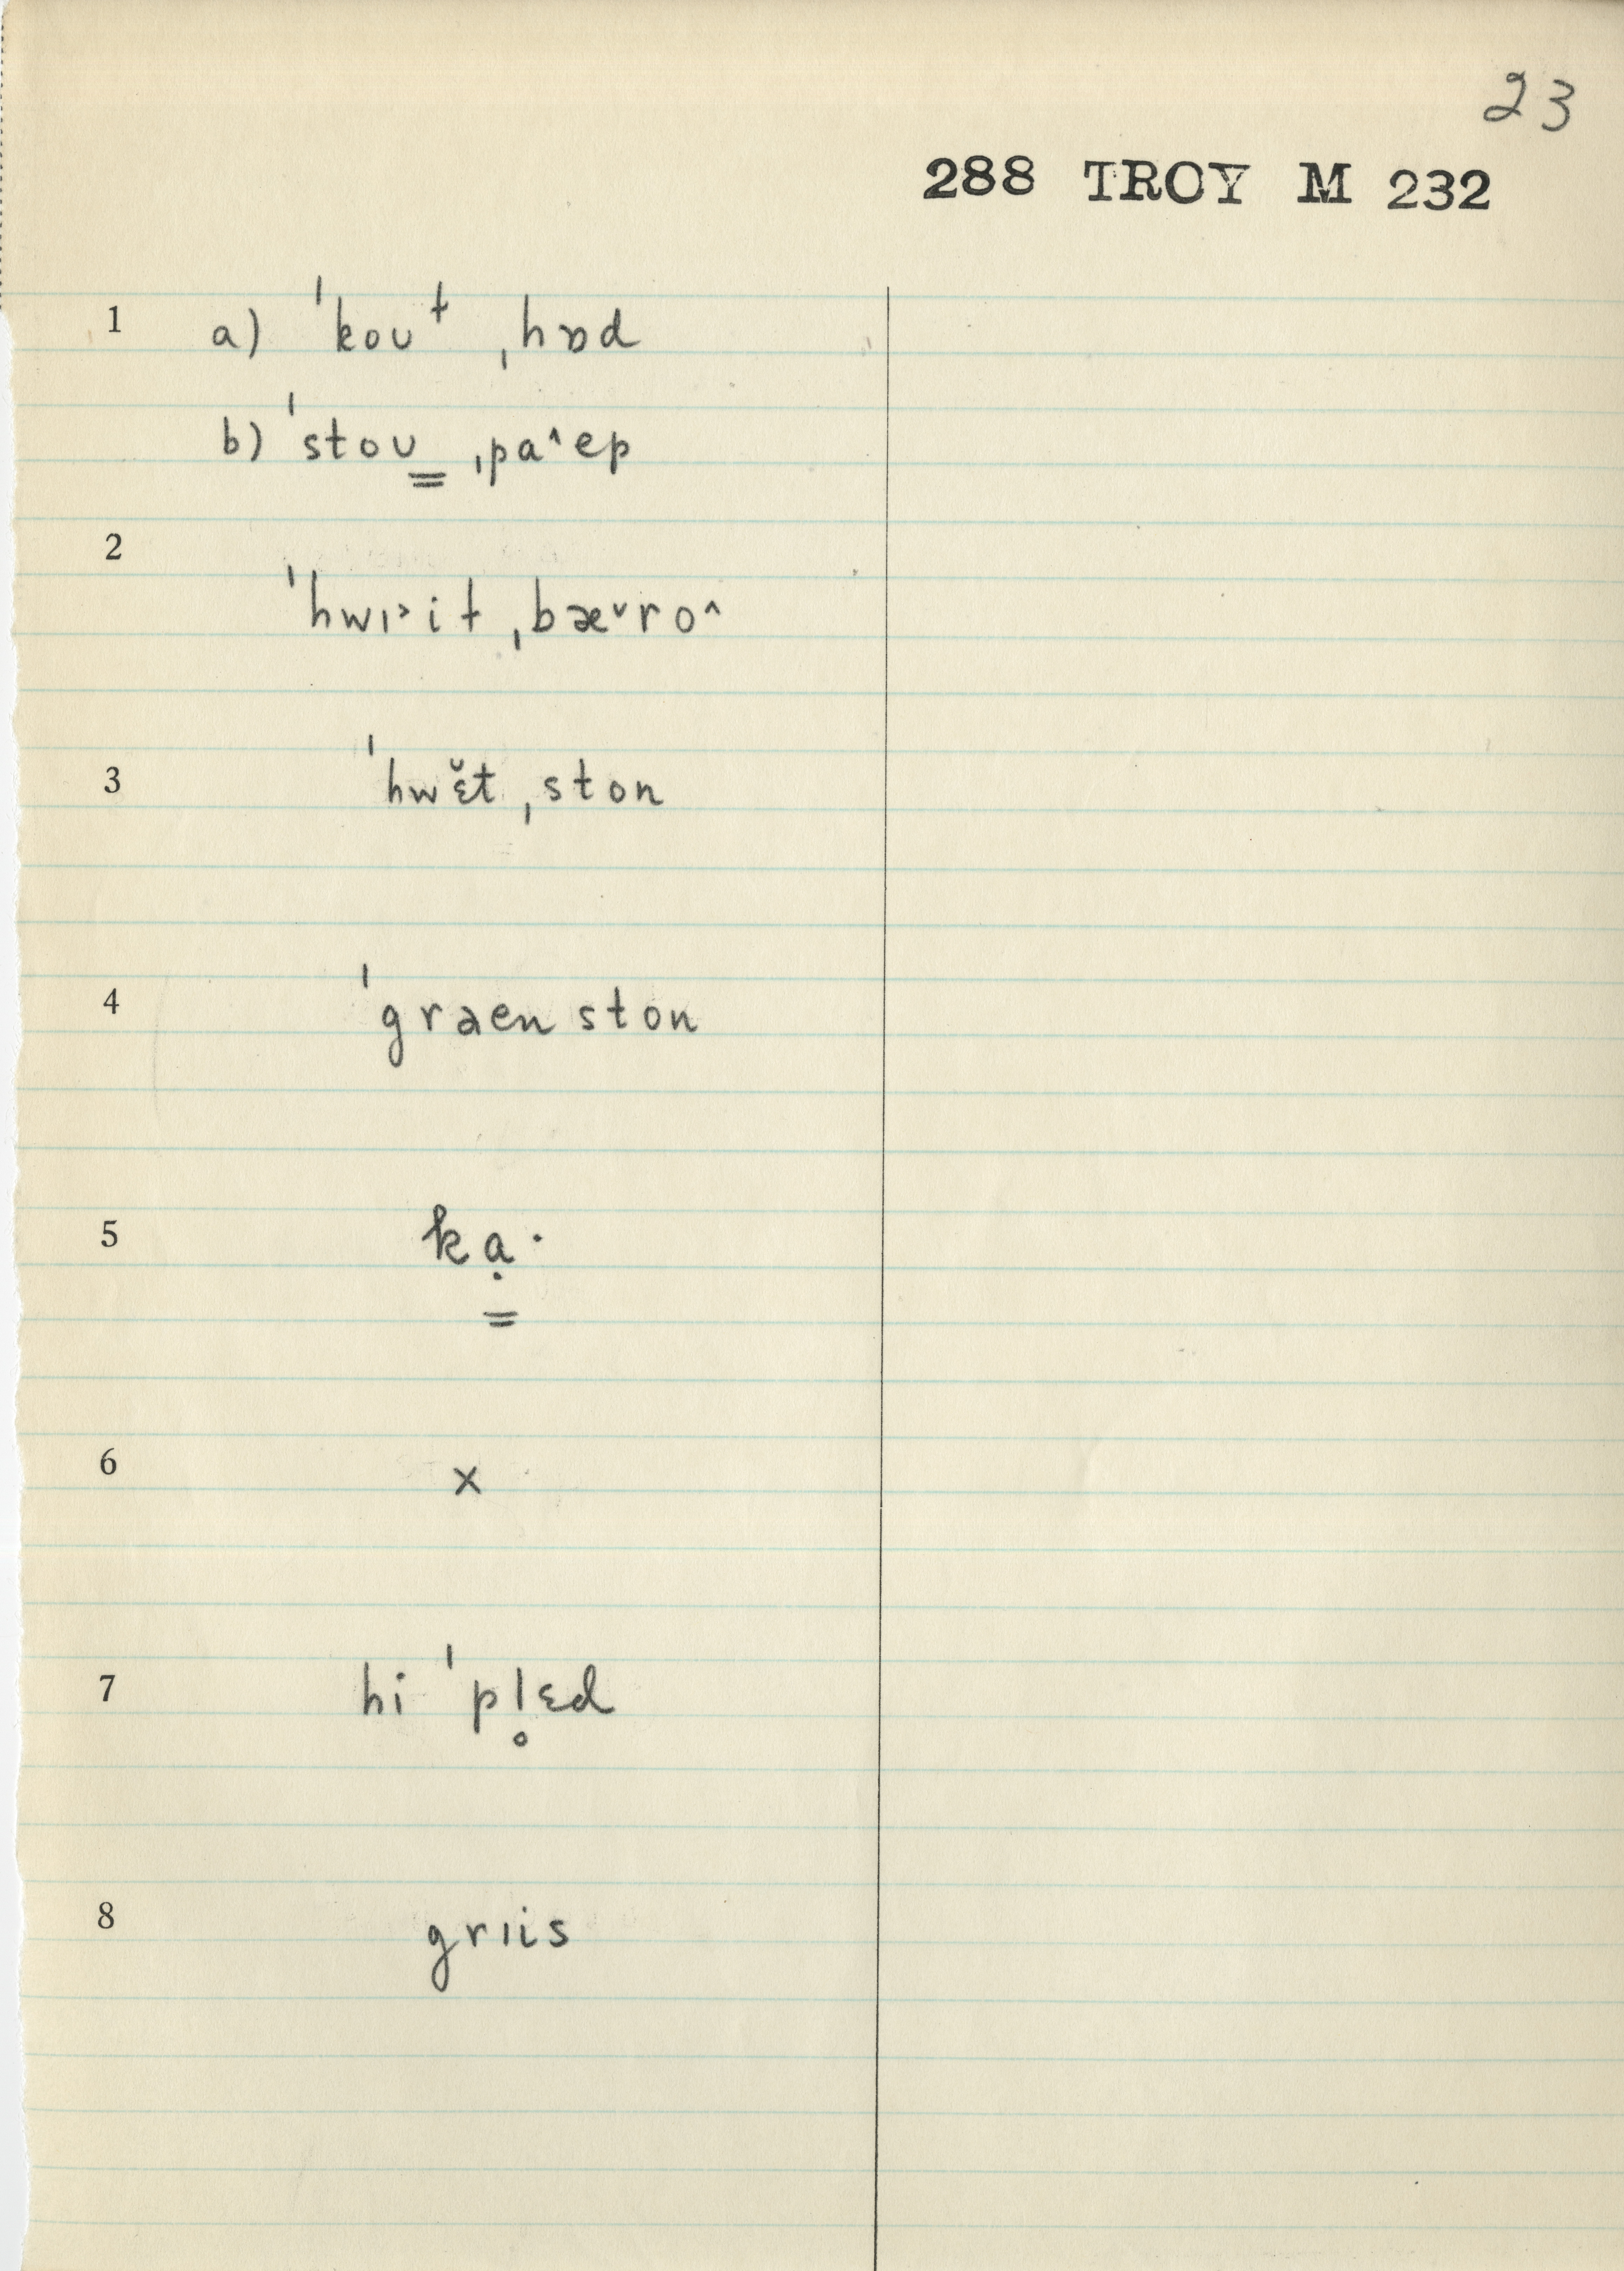 23
288 TROY M 232
1 a) ˈkoʊ⁺ ˌhɒd
b) ˈstoʊ̳ ˌpa^ep
2
ˈhwɪ˃it ˌbæ˅ro^
3 ˈhwɛ̆t ˌston
4 ˈgraen ston
5 kạ̳·
6 x
7 hi ˈpl̥ɛd
8 grɪis